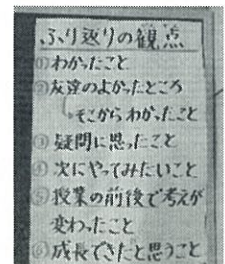 ふり返りの観点
①わかったこと
②友達のよかったところ
↳そこからわかったこと
③疑問に思ったこと
④次にやってみたいこと
⑤授業の前後で考えが
変わったこと
⑥成長できたと思うこと